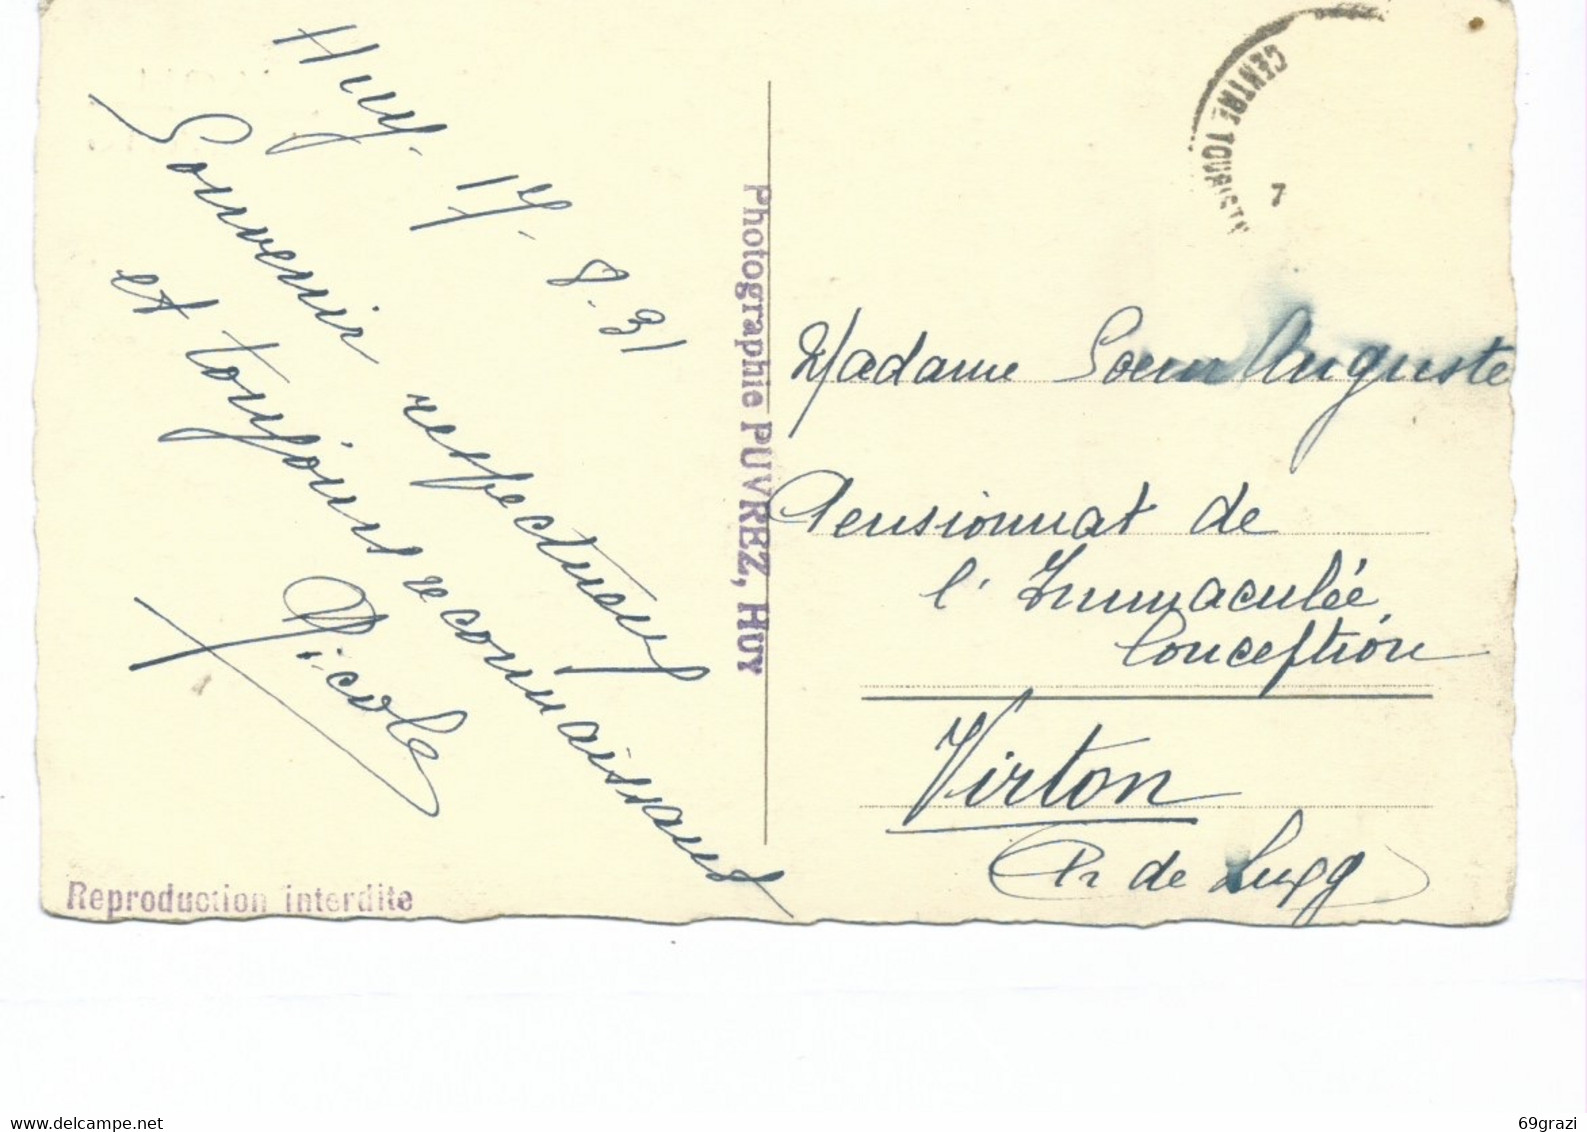 Huy. 17. 8. 31
Souvenir respectueux
et toujours reconnaissant
Nicole
Reproduction interdite
Photographie PUVREZ, HUY
CENTRE TOURISTI
7
Madame Soeur Auguste
Pensionnat de
l'Immaculée
Conception
Virton
Pr de Luxg
69grazi